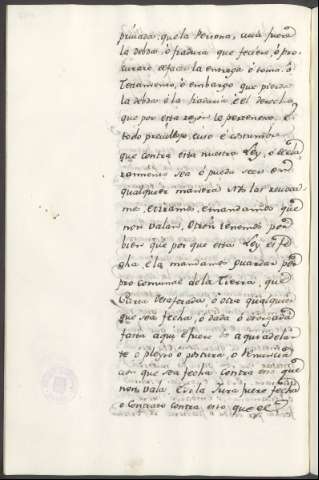 privada: que la Persona, cuia fuera
la debda, ó fiadura que feciere, ó pro-
curare de facer la entrega é toma, ó
Testamento, ó embargo que pierda
la debda é la fiaduria, é el derecho
que por esta rason le pertenesce, é
todo previllejo, cuso é costumbre
que contra esta nuestra Ley, ó
sea ó pueda seer en
qualquier manera Nos las revoca-
mos, é tiramos, é mandamos que
non valan, Otrosi tenemos por
bien que por que esta Ley es fe-
cha, é la mandamos guardar por
pro comunal de la Tierra, que
Carta desaforada, ó otra qualquier
que sea fecha, ó dada, ó otorgada
fasta aqui é fuere de aqui adelan-
te ó pleyto ó postura, ó Renuncia
cion que sea fecha contra esto que
non vala, é si la Jura fuere fecha
o Contrato contra esto que el